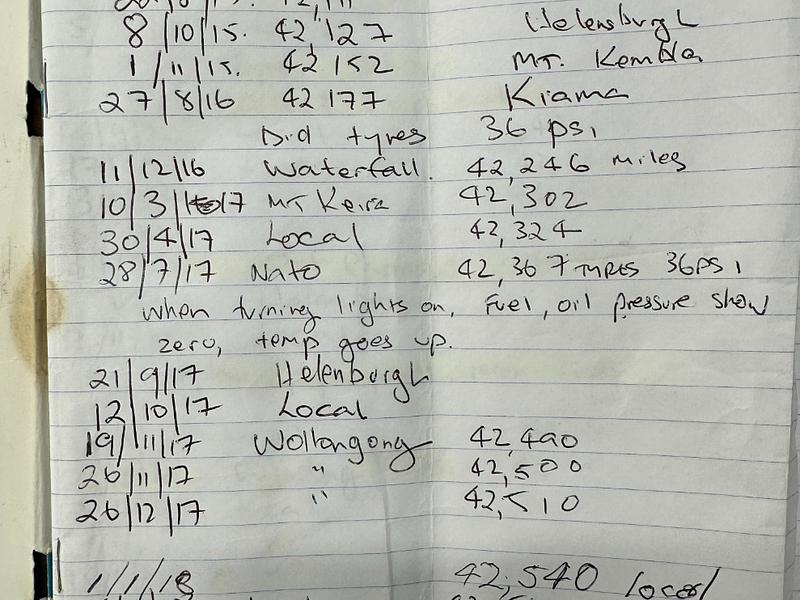 8/10/15. 42,127 Helensburgh
1/11/15. 42 152 MT. Kembla
27/8/16 42 177 Kiama
Did tyres 36 psi
11/12/16 Waterfall. 42,246 miles
10/3/17 MT Keira 42,302
30/4/17 Local 42,324
28/7/17 Nato 42,367 TYRES 36PSI
when turning lights on, fuel, oil pressure show
zero, temp goes up.
21/9/17 Helenburgh
12/10/17 Local
19/11/17 Wollongong 42,490
26/11/17 " 42,500
26/12/17 " 42,510
1/1/18 42,540 local